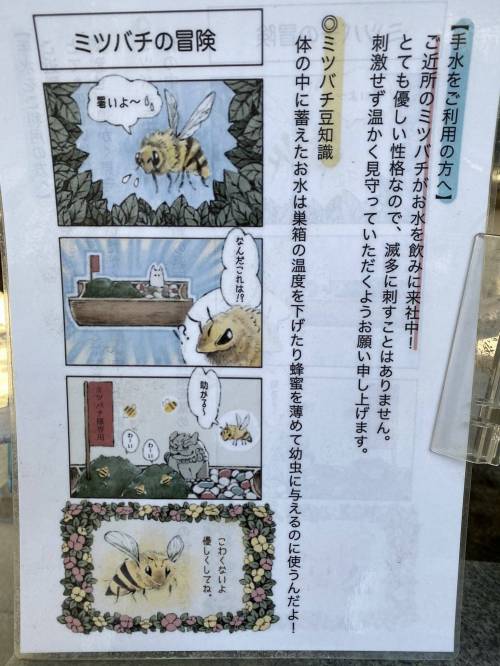 【手水をご利用の方へ】
ご近所のミツバチがお水を飲みに来社中！
とても優しい性格なので、滅多に刺すことはありません。
刺激せず温かく見守っていただくようお願い申し上げます。
◎ミツバチ豆知識
体の中に蓄えたお水は巣箱の温度を下げたり蜂蜜を薄めて幼虫に与えるのに使うんだよ！
ミツバチの冒険
暑いよ〜
なんだこれは!?
助かる〜
わーい
わーい
ミツバチ様専用
こわくないよ
優しくしてね。